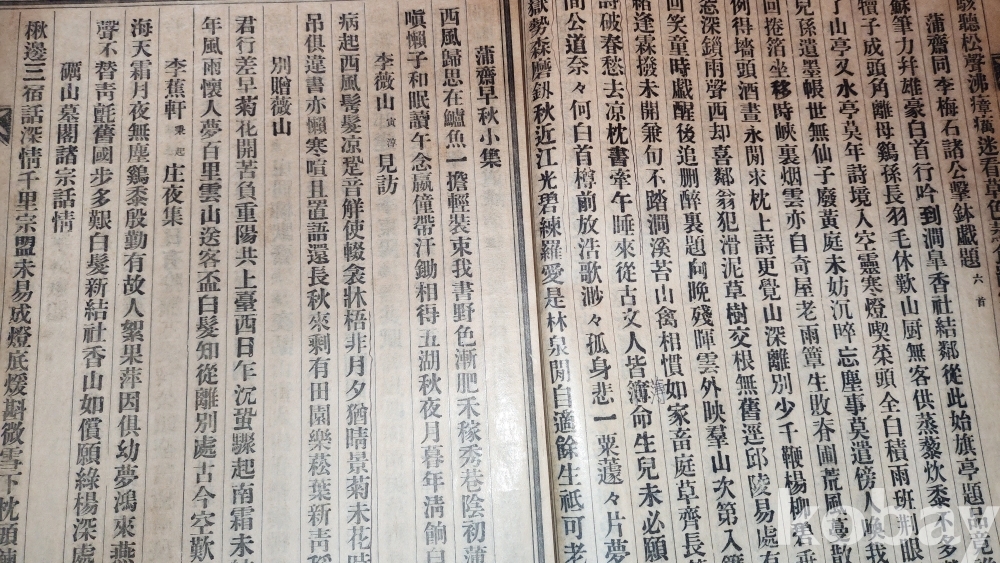 駭聽松聲沸瘴癘迷看草色
蒲齋同李梅石諸公擊鉢戱題 六首
蘇筆力幷雄豪白首行吟到澗臯香社結鄰從此始旗亭題品竟
犢子成頭角離母鷄孫長羽毛休歎山厨無客供蒸藜炊黍不多
了山亭又水亭莫年詩境入空靈寒燈喫菜頭全白積雨班荆眼
兒孫遺墨帳世無仙子廢黃庭未妨沉晬忘塵事莫遣傍人喚我
回捲箔坐移時峽裏烟雲亦自奇屋老雨蕈生敗脊圃荒風蔓散
例得墻頭酒晝永閒求枕上詩更覺山深離別少千鞭楊柳君
窓深鎖雨聲西却喜鄰翁犯滑泥草樹交根無舊逕邱陵易處有
回笑童時戱醒後追删醉裏題向晚殘暉雲外映羣山次第入
緒逢霖撥未開兼句不踏澗溪苔山禽相慣如家畜庭草齊長
詩破春愁去凉枕書牽午睡來從古文人皆薄命生兒未必願
間公道奈々何白首樽前放浩歌渺々孤身悲一粟蘧々片夢
嶽勢森磨釼秋近江光碧練羅愛是林泉閒自適餘生祗可老
蒲齋早秋小集
西風歸思在鱸魚一擔輕裝束我書野色漸肥禾稼秀巷陰初
嗔懶子和眠讀午念嬴僮帶汗鋤相得五湖秋夜月暮年淸餉白
李薇山 寅溶 見訪
病起西風髩髮凉跫音鮮使輟衾牀梧非月夕猶晴景菊未花時
吊俱違書亦懶寒喧且置語還長秋來剩有田園樂菘葉新靑
別贈薇山
君行差早菊花開苦負重陽共上臺西日乍沉蛩驟起南霜未
年風雨懷人夢百里雲山送客盃白髮知從離別處古今空歎
李蕉軒 秉起 庄夜集
海天霜月夜無塵鷄黍殷勤有故人絮果萍因俱幼夢鴻來燕
聲不替靑氈舊國步多艱白髮新結社香山如償願綠楊深處
礪山墓閣諸宗話情
楸邊三宿話深情千里宗盟未易成燈底煖斟微雪下枕頭